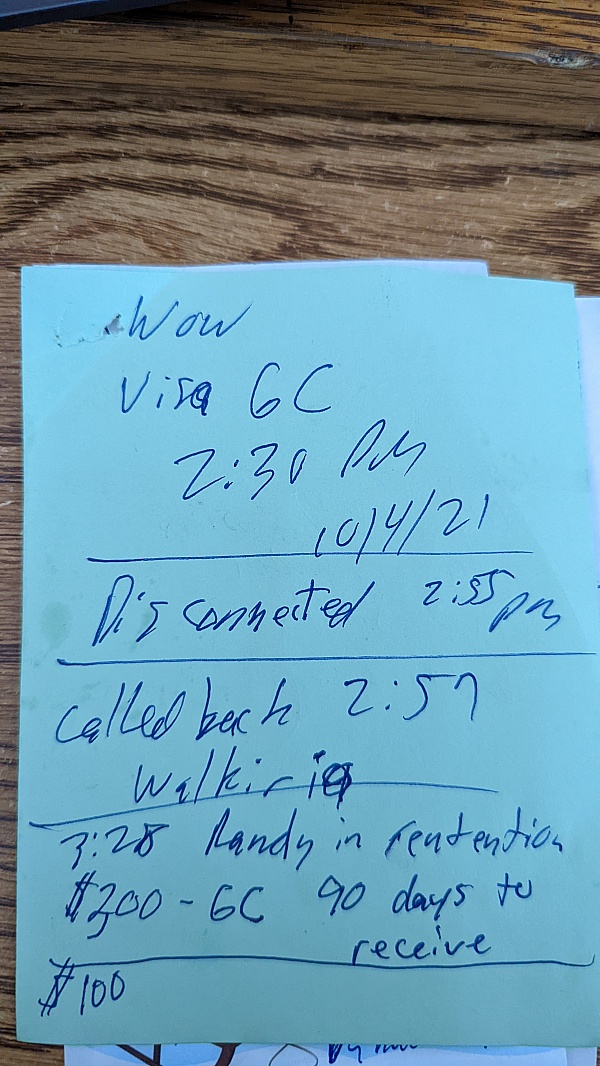 Wow
Visa GC
2:30 PM
10/4/21
Disconnected 2:55 pm
Called back 2:57
Walkiria
3:28 Randy in rentention
$200 - GC 90 days to
receive
$100